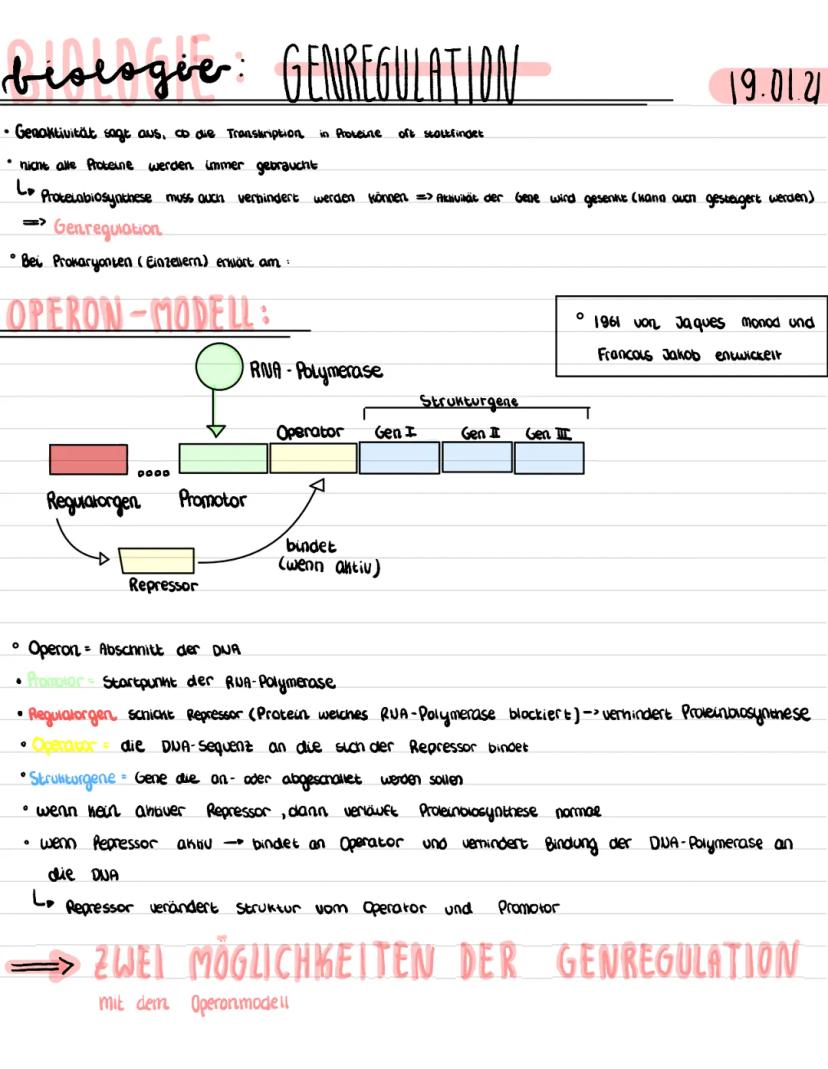 biologie: GENREGULATION
19.01.21
• Genaktivität sagt aus, ob die Transkription in Proteine oft stattfindet
• nicht alle Proteine werden immer gebraucht
↳ Proteinbiosynthese muss auch verhindert werden können => Aktivität der Gene wird gesenkt (kann auch gesteigert werden)
=> Genregulation
• Bei Prokaryonten (Einzellern) erklärt am :
OPERON-MODELL:
° 1961 von Jaques Monod und
Francois Jakob entwickelt
RNA-Polymerase
Strukturgene
Operator Gen I Gen II Gen III
Regulatorgen Promotor
bindet
(wenn aktiv)
Repressor
° Operon = Abschnitt der DNA
• Promotor = Startpunkt der RNA-Polymerase
• Regulatorgen schickt Repressor (Protein welches RNA-Polymerase blockiert) -> verhindert Proteinbiosynthese
• Operator = die DNA-Sequenz an die sich der Repressor bindet
• Strukturgene = Gene die an- oder abgeschaltet werden sollen
• wenn kein aktiver Repressor, dann verläuft Proteinbiosynthese normal
• wenn Repressor aktiv → bindet an Operator und verhindert Bindung der DNA-Polymerase an
die DNA
↳ Repressor verändert Struktur vom Operator und Promotor
⟹ ZWEI MÖGLICHKEITEN DER GENREGULATION
mit dem Operonmodell